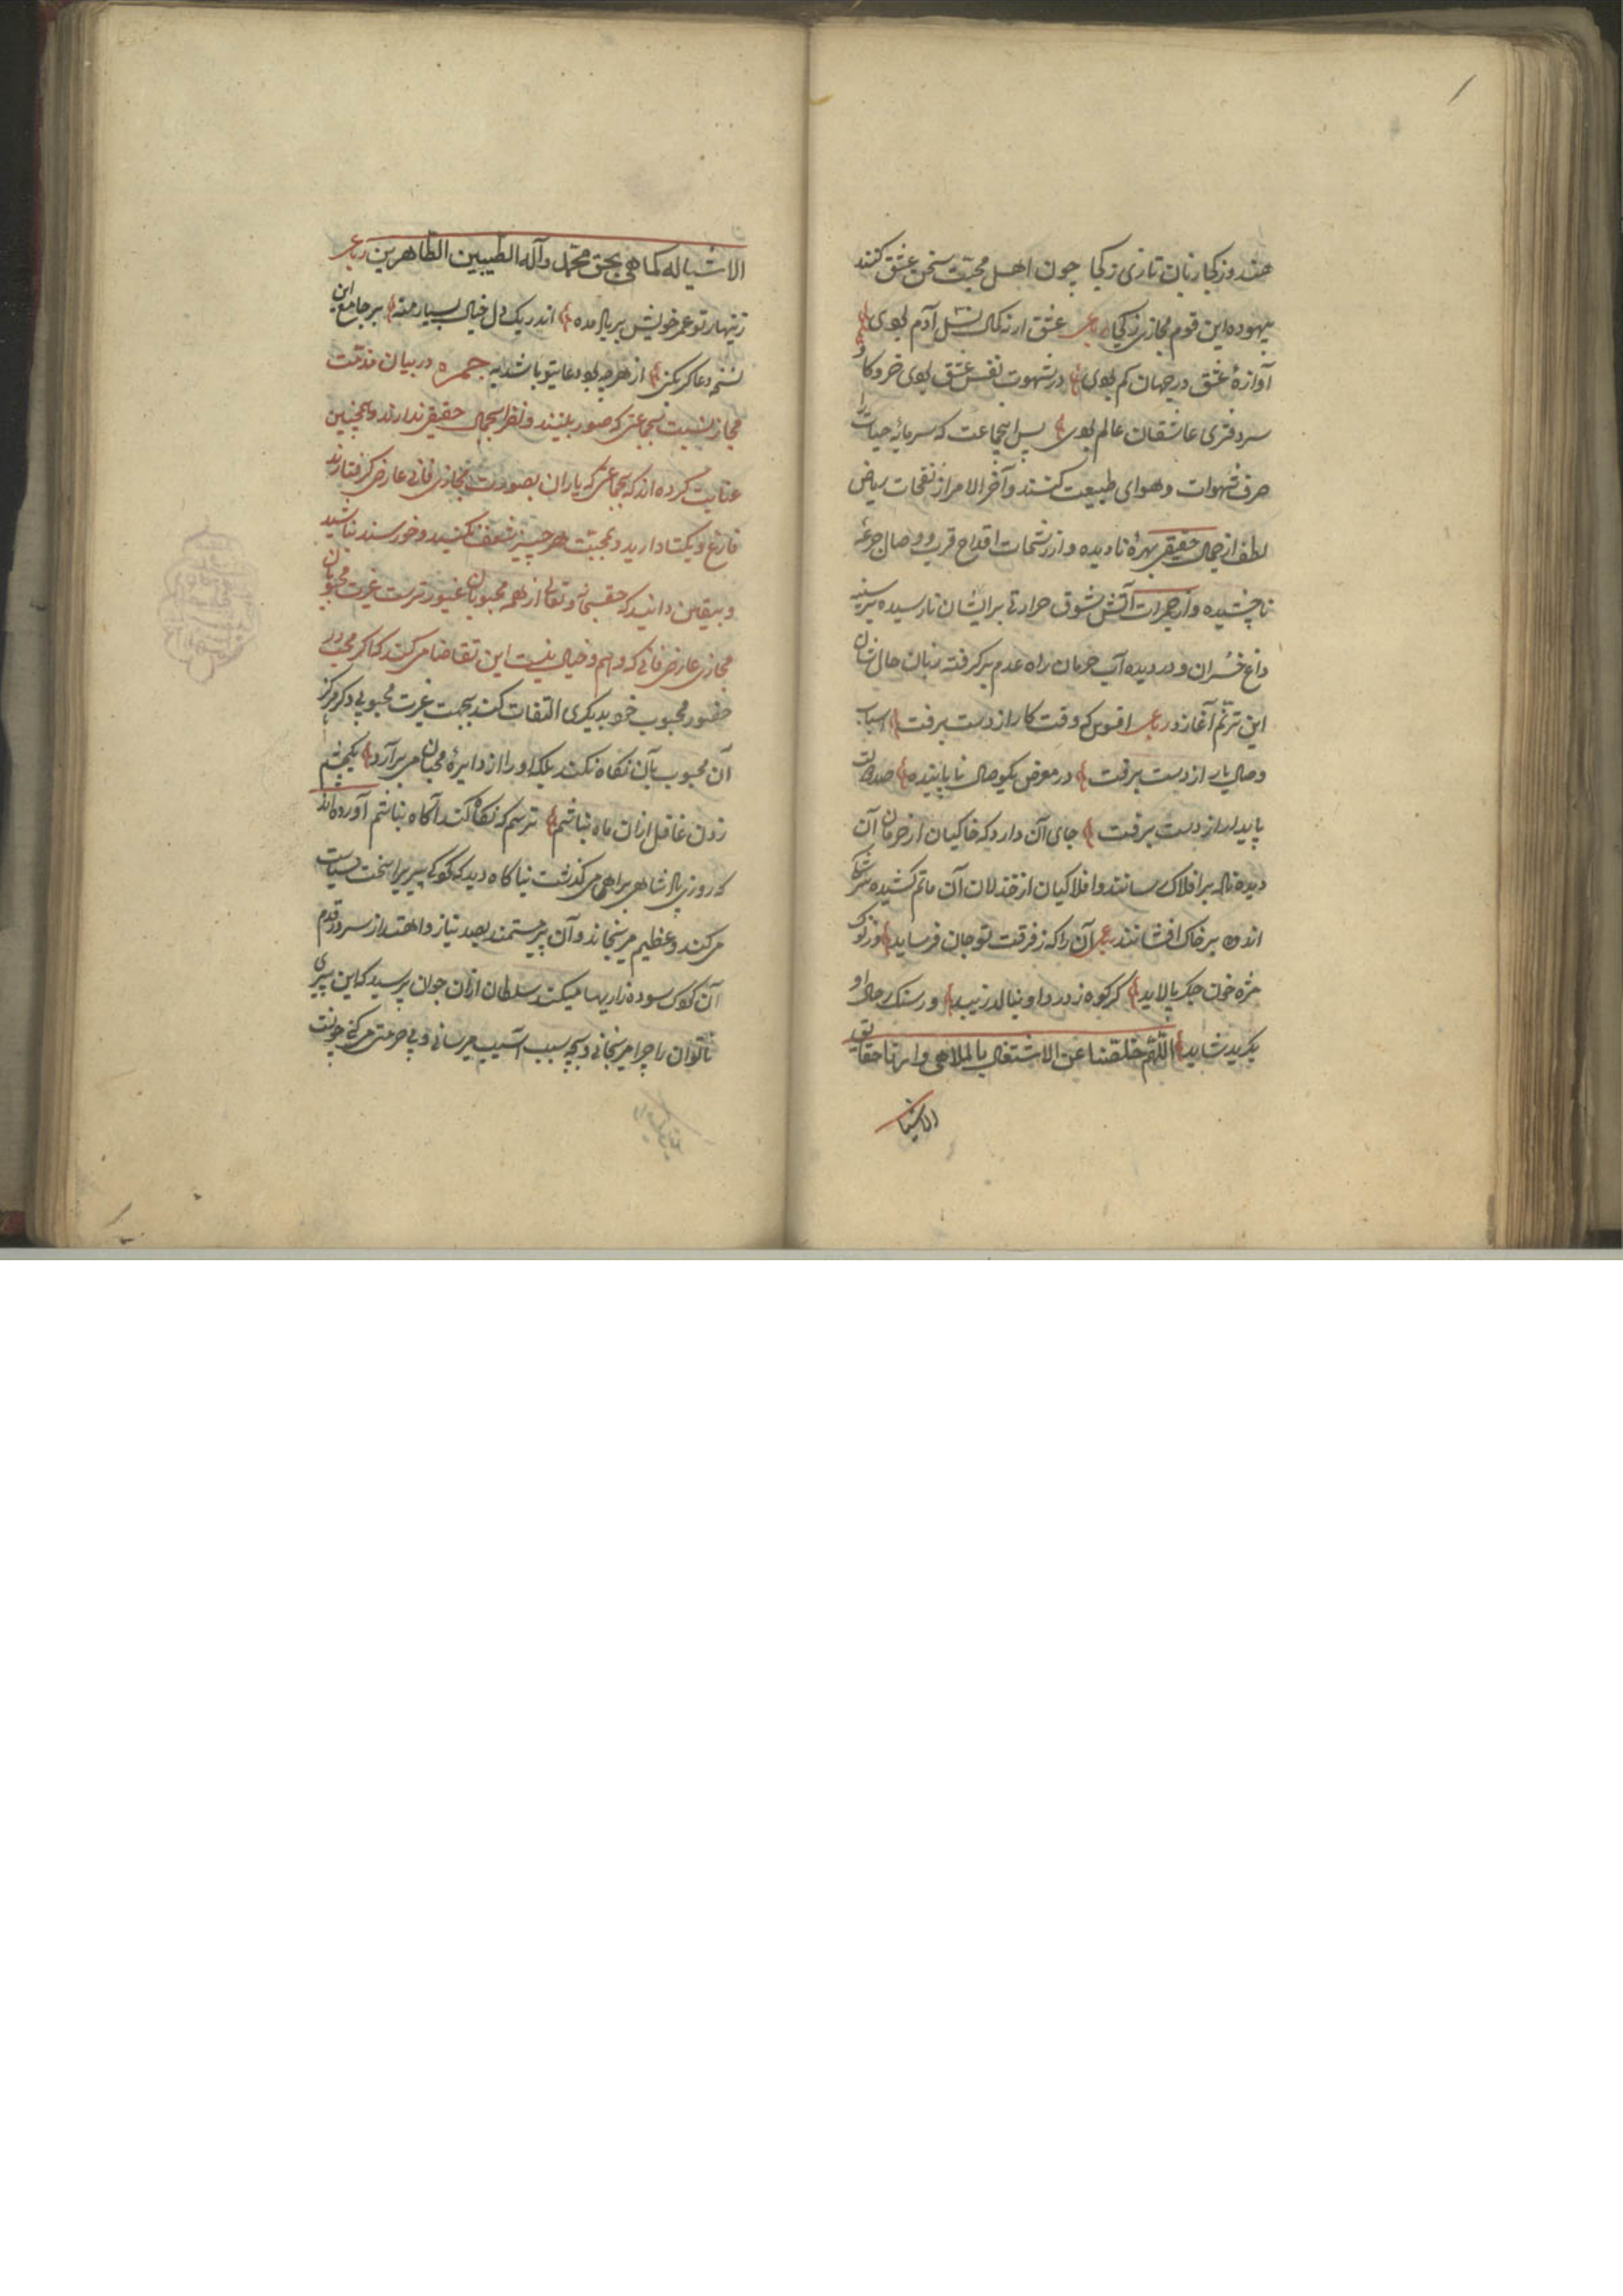 هندو ز کجا زبان تازی ز کجا چون اهل محبت سخن عشق کنند
بیهوده این قوم مجازی ز کجا رباعی عشق ار ز کمال نسل آدم بودی
آوازهٔ عشق در جهان کم بودی در شهوت نفس عشق بودی خر و گاو
سر دفتری عاشقان عالم بودی پس اینجماعت که سرمایهٔ حیات را
صرف شهوات و هوای طبیعت کنند و آخر الامر از نفحات ریاض
لطف از جمال حقیقی بهرهٔ نادیده و از رشحات اقداح قرب و وصال جرعهٔ
ناچشیده و از جمرات آتش شوق حرارتی برایشان نارسیده بر سینه
داغ خسران و در دیده آب حرمان راه عدم بر گرفته زبان حال شان
این ترنم آغازد رباعی افسوس که وقت کار از دست برفت اسباب
وصال یار از دست برفت در معرض یکوصال ناپاینده صد دولت
پایدار از دست برفت جای آن دارد که خاکیان از حرمان آن
دیده ناله بر افلاک رسانند و افلاکیان از خذلان آن ماتم کشیده سرشک
اندوه بر خاک افشانند آن را که ز فرقت تو جان فرساید وز نوک
مژه خون جگر پالاید گر کوه ز درد او بنالد زیبد ور سنگ بحال او
بگرید شاید اللهم خلصنا عن الاشتغال بالملاهی و ارنا حقایق
الاشیا
الاشیاء کما هی بحق محمد وآله الطیبین الطاهرین رباعی
زینهار تو عمر خویش بر باد مده اندر یک دل خیال بسیار منه بر جامع این
نسخه دعا گر بکنی از هر چه بود دعا بتو باشد به جمره در بیان مذمت
مجاز نسبت بجماعتی که صور بینند و نظر بجمال حقیقی ندارند و همچنین
عنایت کرده اند که بجماعتی که یاران بصورت مجازی فانی عارضی گرفتارند
فارغ و یکتا دارید و بمحبت هر چیز شعف نکنید و خورسند نباشید
و بیقین دانید که حق سبحانه و تعالی از همه محبوبان غیورتر است غیرت محبوبان
مجازی عارضی فانی که وهم و خیال بیش نیست این تقاضا می کند که اگر محب در
حضور محبوب خود بدیگری التفات کند بجهت غیرت محبوبی دگر هرگز
آن محبوب بآن نگاه نکند بلکه او را از دایرهٔ محبان می برآرد یکچشم
زدن غافل ازان ماه نباشم ترسم که نگاه کند آگاه نباشم آورده اند
که روزی پادشاهی براهی می گذشت ناگاه دید که کودکی پیری را سخت سیاست
می کند و عظیم می رنجاند و آن پیر مستمند بصد نیاز و اهتزاز سر در قدم
آن کودک سوده زاریها میکند سلطان ازان جوان پرسید که این پیری
ناتوان را چرا می رنجانی و بچه سبب آسیب میرسانی و بی حرمتی می کنی جوان گفت